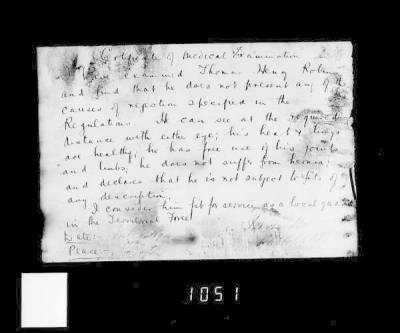 Certificate of Medical Examination
examined Thomas Henry
and find that he does not present any of the
causes of rejection specified in the
Regulations. He can see at the required
distance with either eye; his heart & lungs
are healthy; he has free use of his joints
and limbs; he does not suffer from hernia;
and declares that he is not subject to fits of
any description.
I consider him fit for service as a local
in the Territorial Force
Date:
Place:-
1051